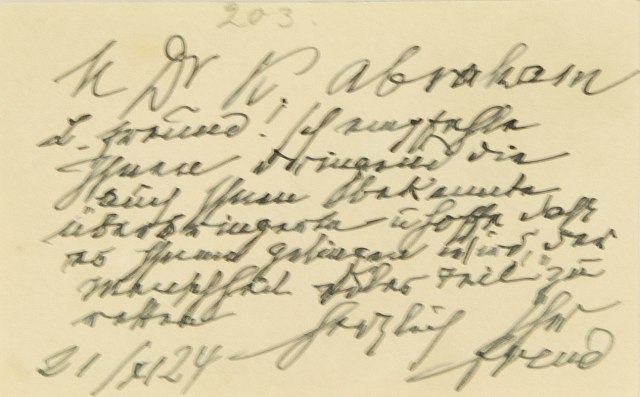 203.
H Dr K. Abraham
L. Freund! Ich empfehle
Ihnen dringend die
auch Ihnen bekannte
Überbringerin u hoffe daß
es Ihnen gelingen wird, der
Menschheit zu
retten Herzlich Ihr
21/XI 24 Freud